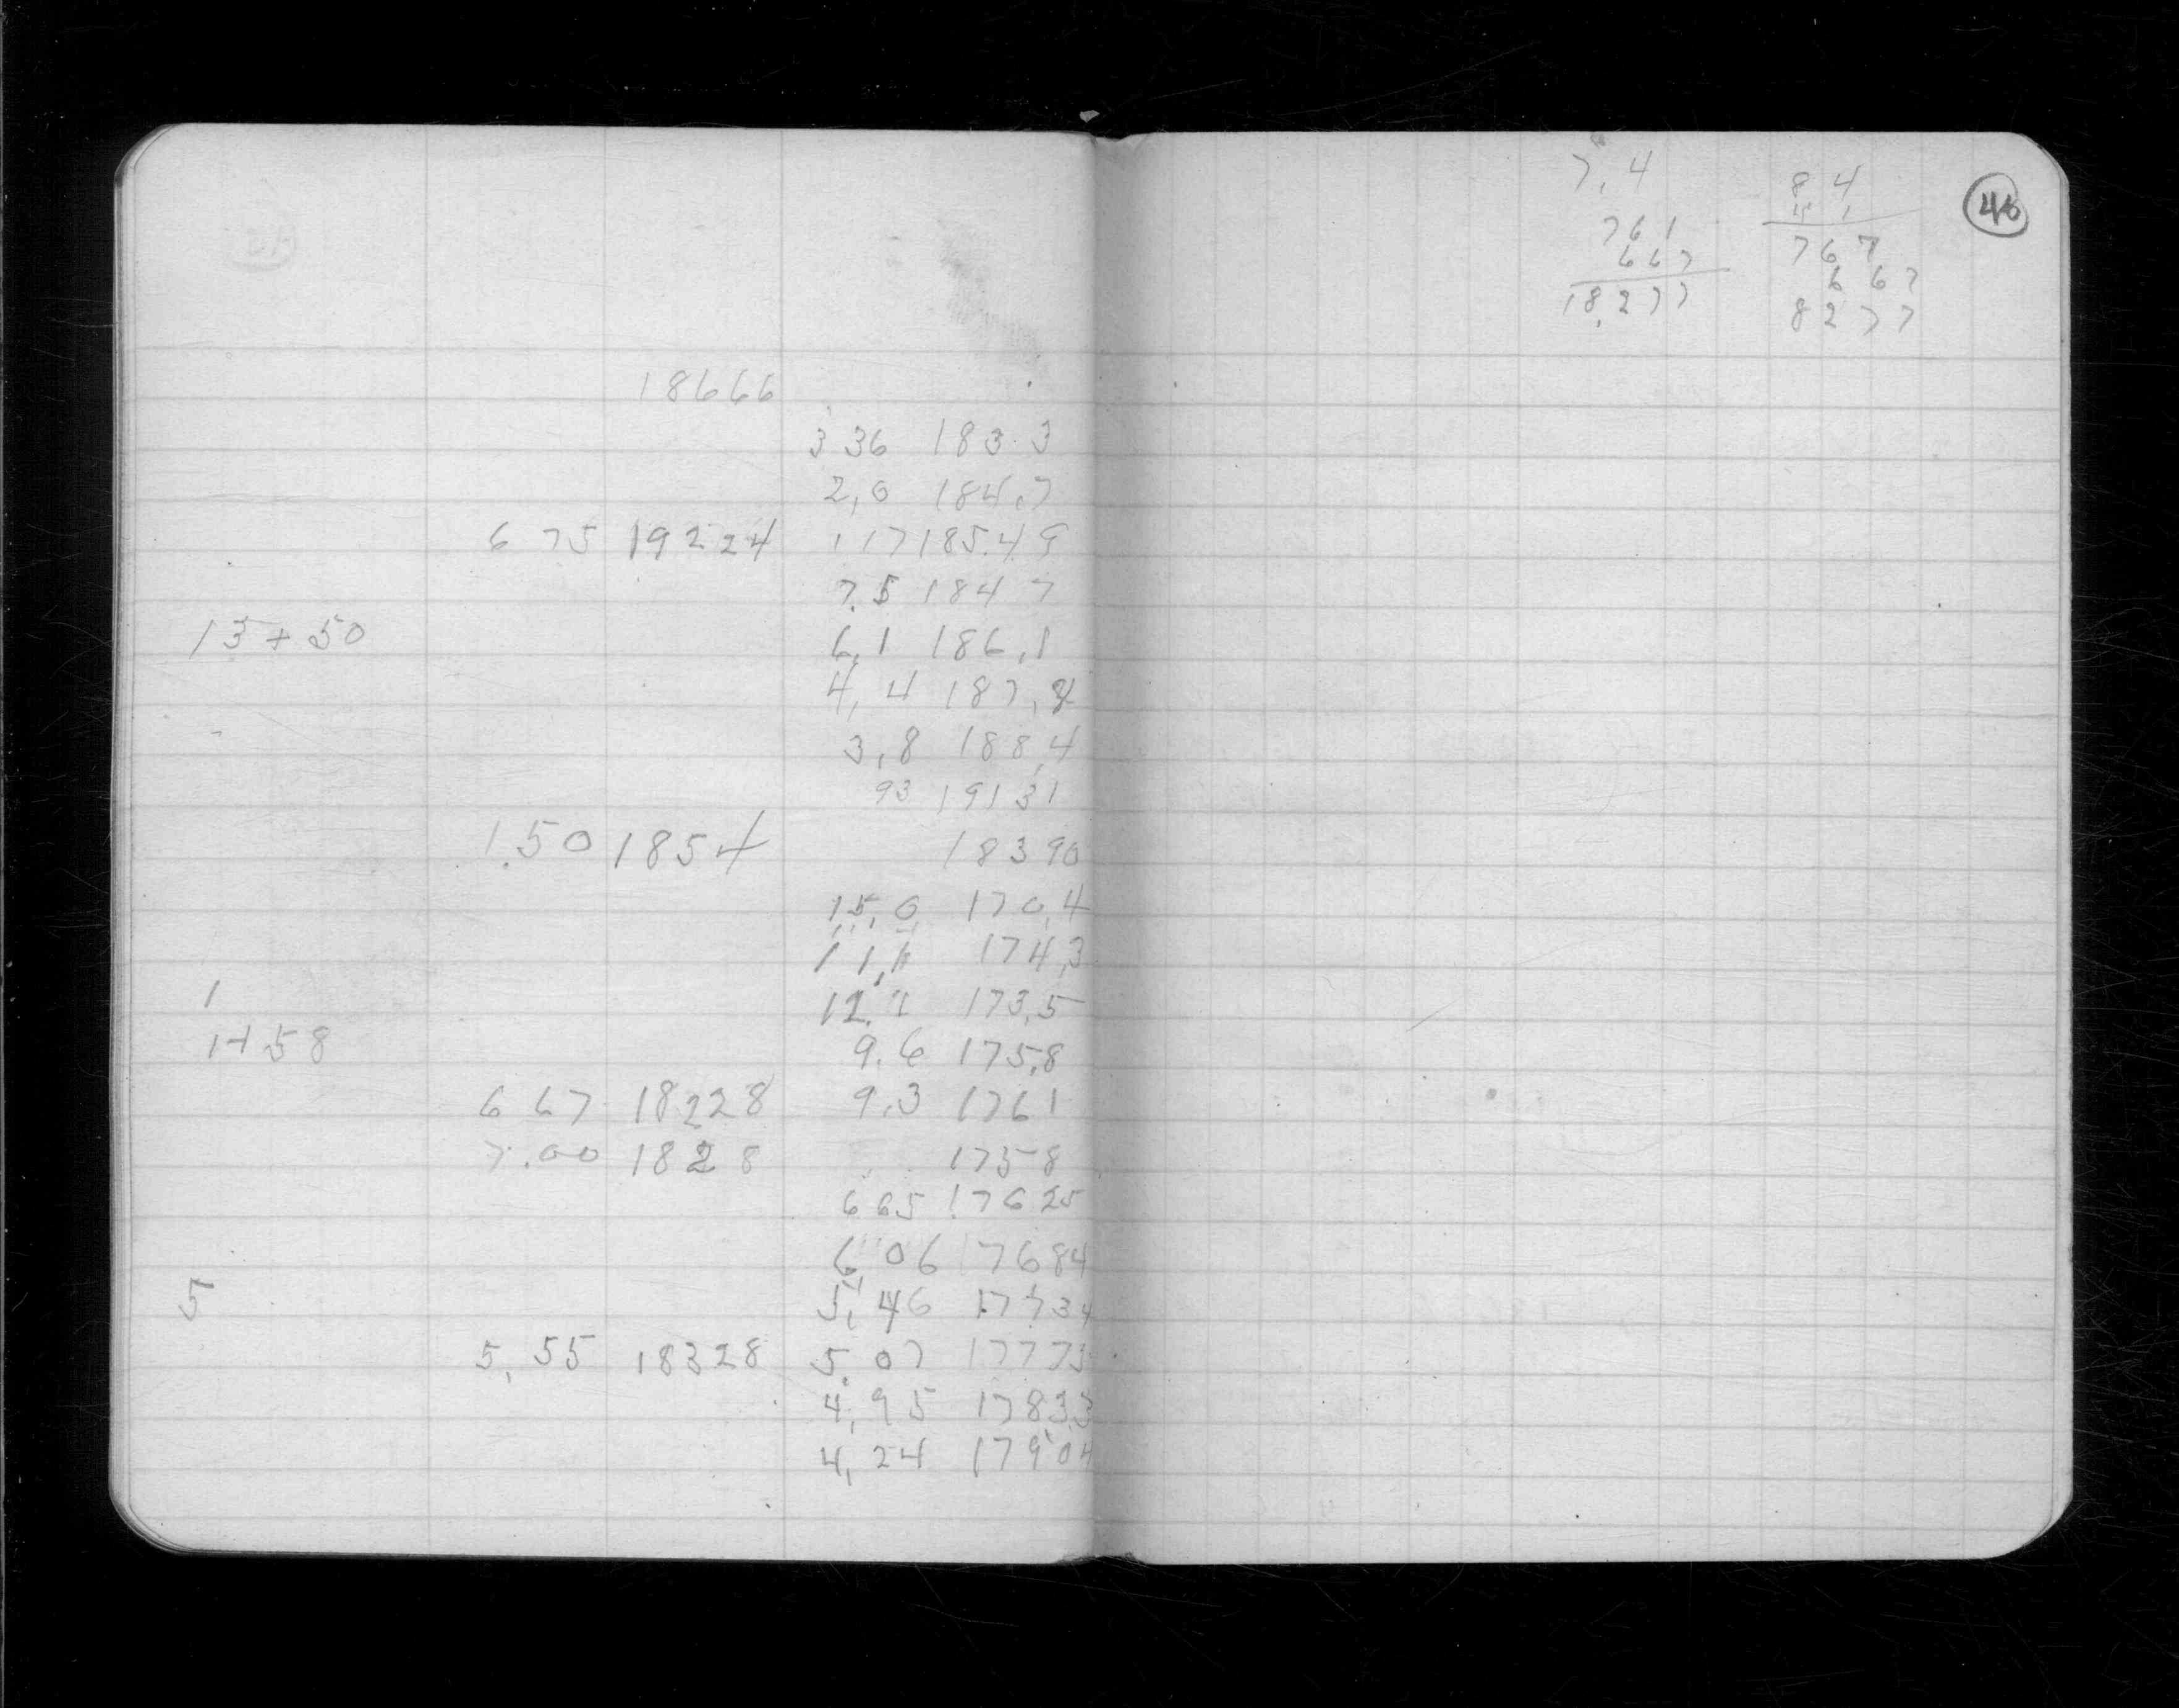 18666
3 36 183.3
2,0 184,7
6 75 19224 1 17 185.49
7.5 184 7
15+50 6,1 186,1
4,4 187,8
3,8 188,4
93 19131
1.50 1854 18390
15,0 170,4
174,3
1 173,5
1+58 9.6 175,8
6 67 18228 9.3 1761
7.00 1828 1758
6 65 17625
6 06 17684
5 5,46 17734
5,55 18328 5.07 17773
4,95 1783.3
4,24 17904
7,4
761
667
18,277
84
767
6 67
8277